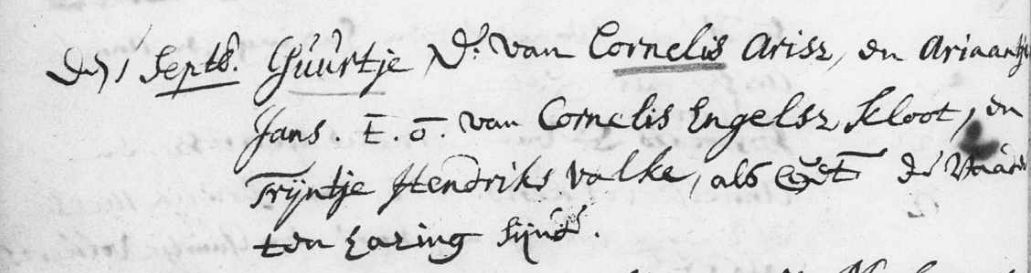 den 1 Septb. Guurtje, Dr. van Cornelis Arisz, en Ariaantje
Jans. T. o. van Cornelis Engelsz Kloot, en
Trijntje Hendriks Valke, als get de Vaar
ten haring sijnd.